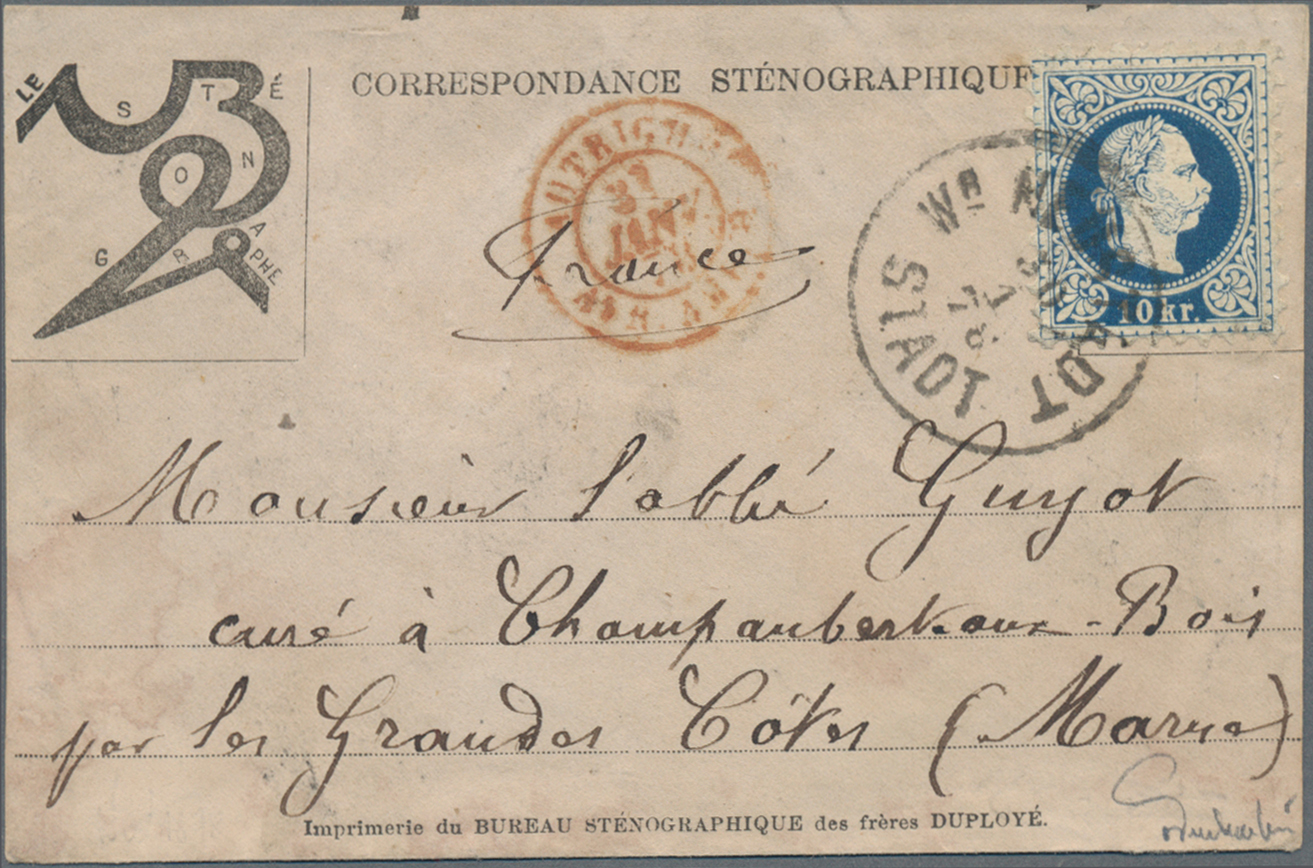 LE STÉNOGRAPHE
CORRESPONDANCE STÉNOGRAPHIQUE
AUTRICH
31
JANV
France
Wr. NEUSTADT
STADT
30
1
78
10 kr.
Monsieur l'abbé Guyot
curé à Champaubert-aux-Bois
par les Grandes Côtes (Marne)
Imprimerie du BUREAU STÉNOGRAPHIQUE des frères DUPLOYÉ.